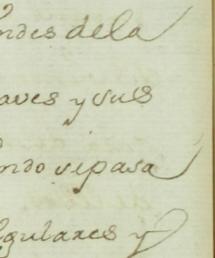 ndes dela
aves y sus
ndo sipasa
gulares y